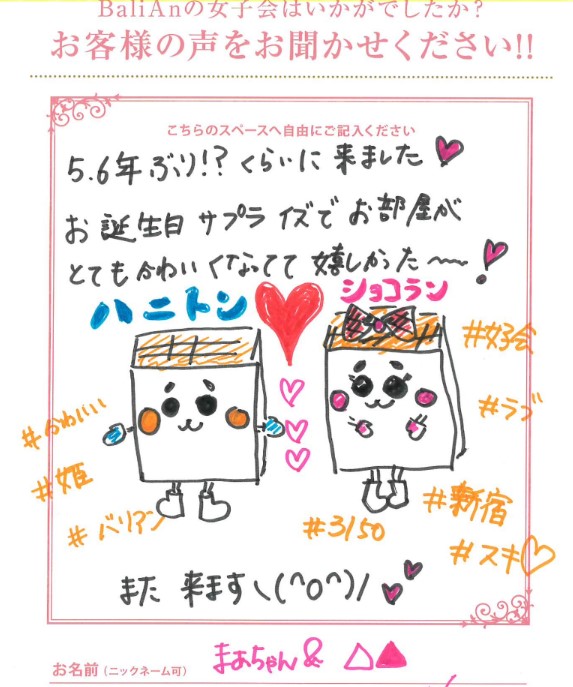 BaliAnの女子会はいかがでしたか?
お客様の声をお聞かせください!!
こちらのスペースへ自由にご記入ください
5.6年ぶり!? くらいに 来ました♥
お誕生日 サプライズで お部屋が
とても かわいくなってて 嬉しかった〜〜!
ハニトン ♥ ショコラン
#女子会
#かわいい
#ラブ
#姫
#新宿
#バリアン
#3150
#スキ♡
また 来ます\(^o^)/♥♥
お名前(ニックネーム可) まあちゃん& △▲